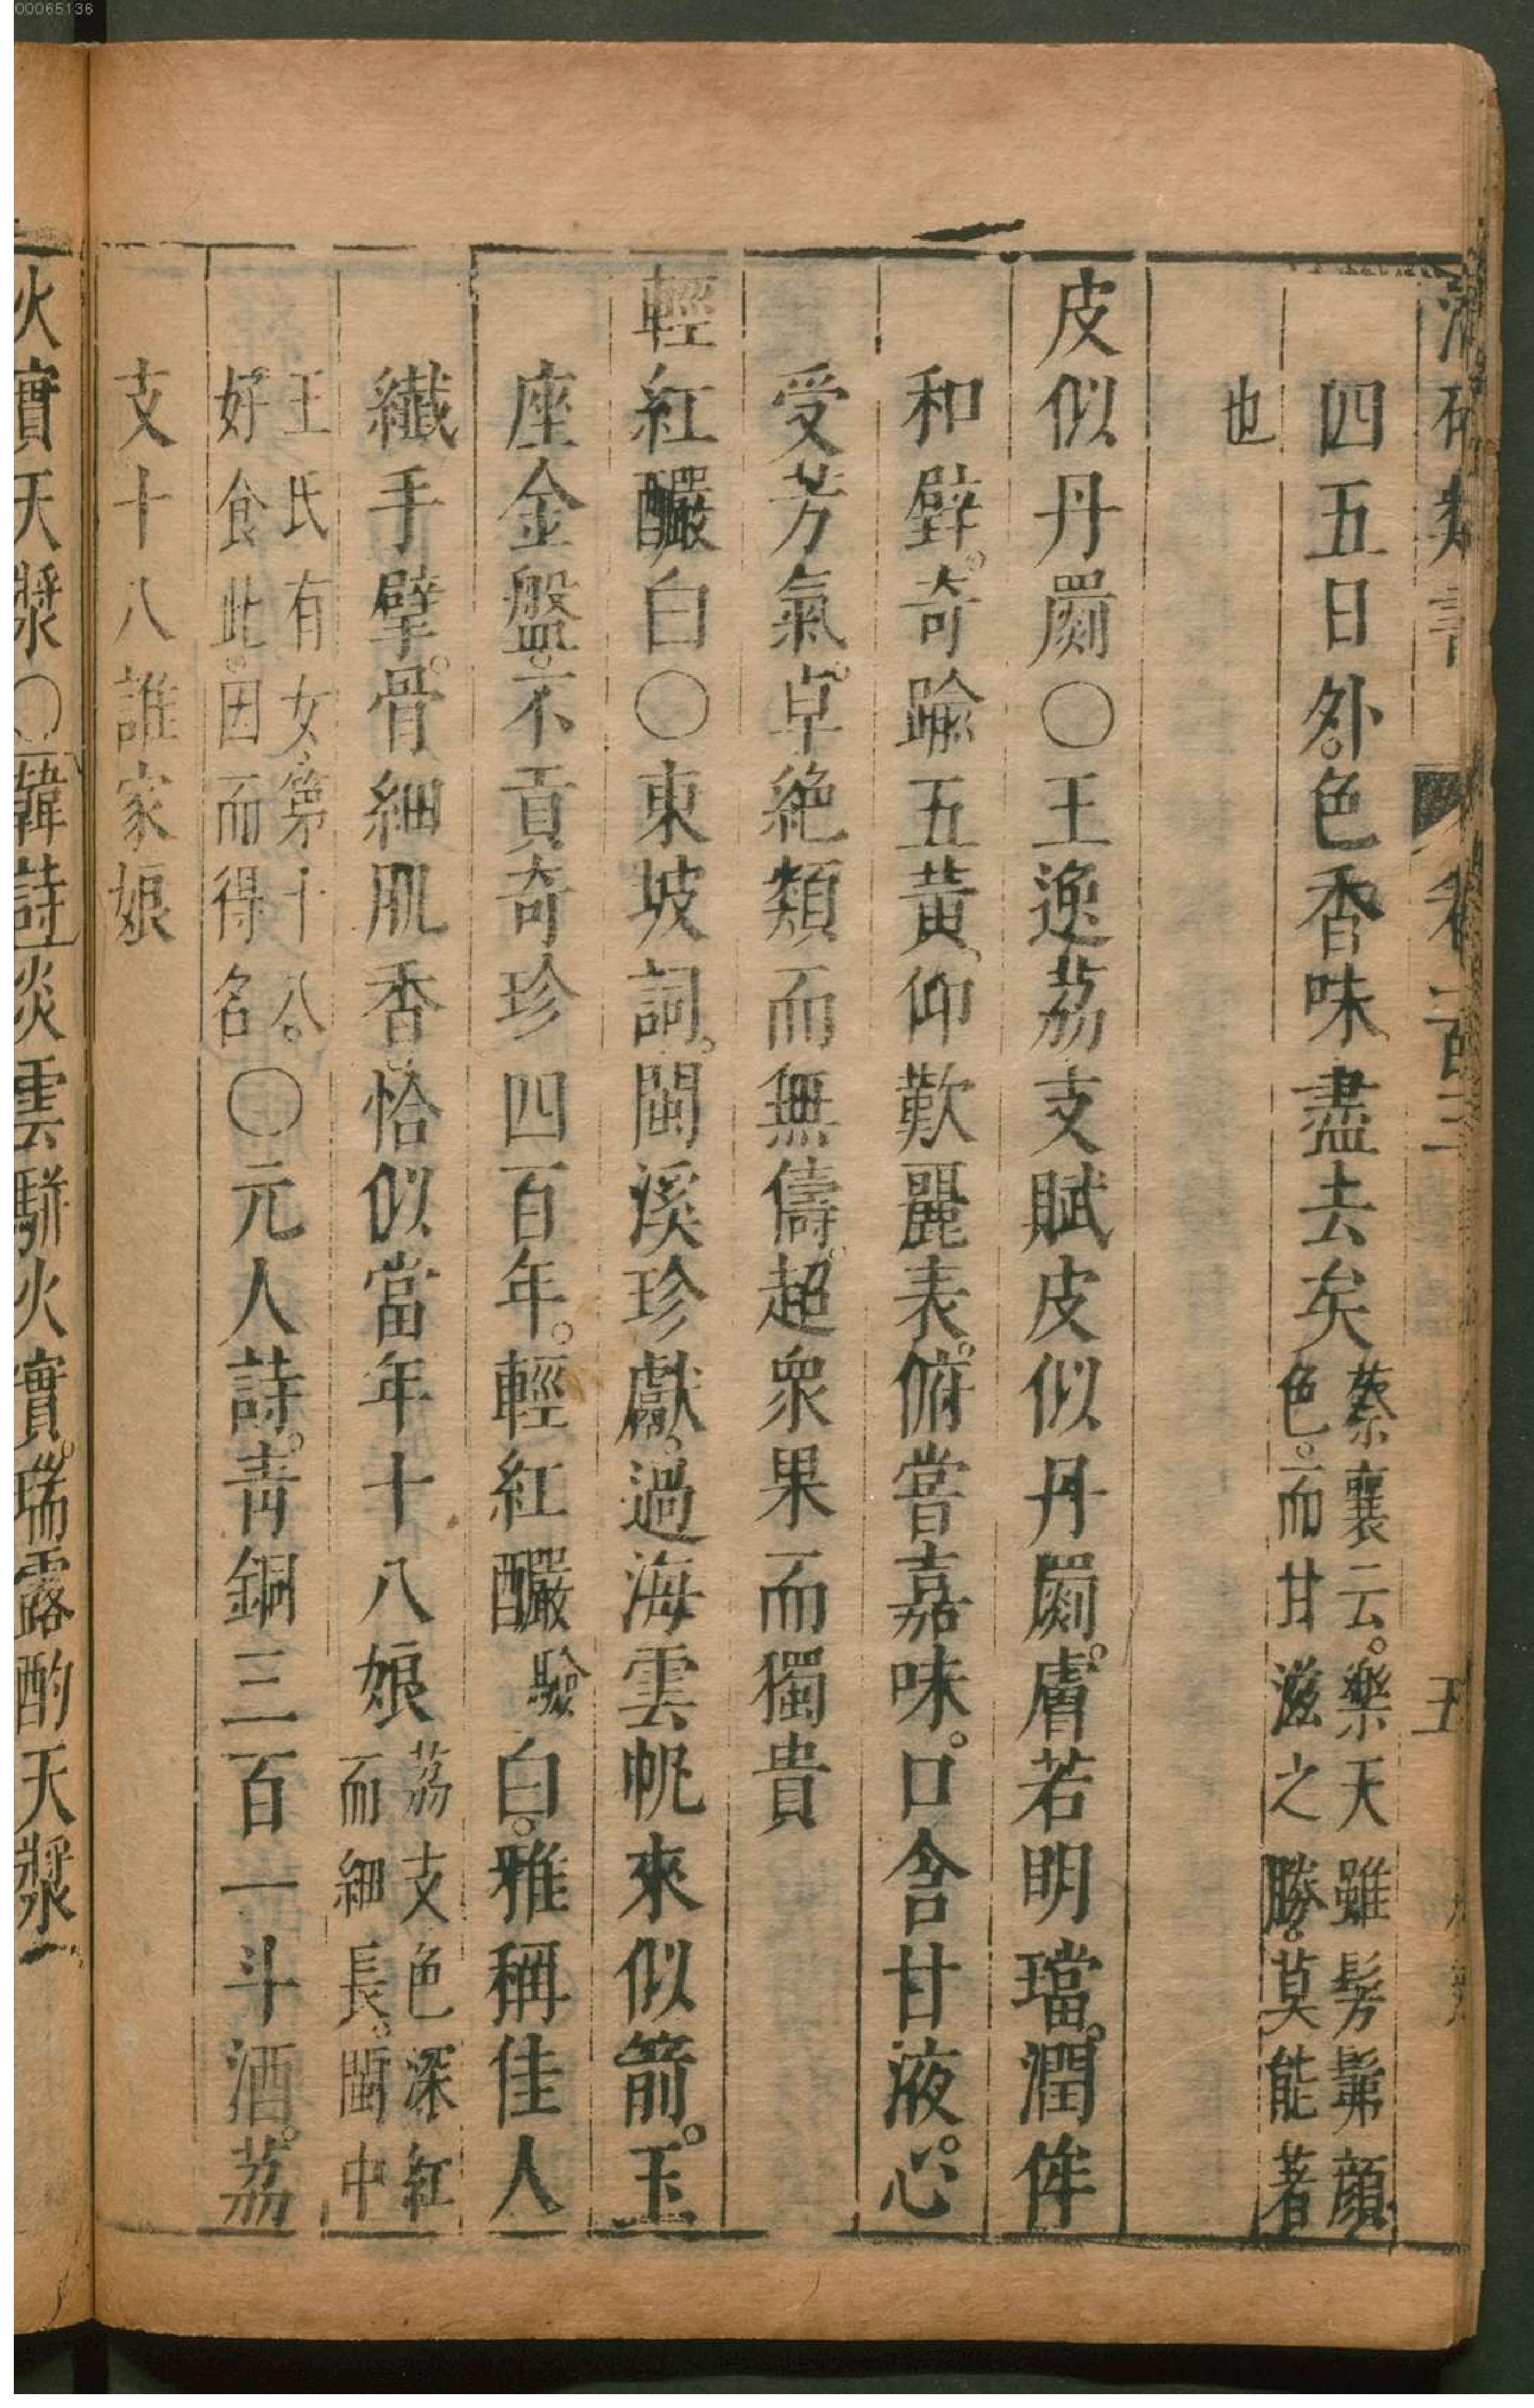 00065136
四五日外。色香味盡去矣蔡襄云。樂天雖髣髴顔色。而甘滋之勝。莫能著
也
皮似丹罽〇王逸荔支賦皮似丹罽。膚若明璫。潤侔
和璧。奇踰五黃、仰歎麗表。俯嘗嘉味。口含甘液。心
受芳氣。卓絶類而無儔。超衆果而獨貴
輕紅釅白〇東坡詞。閩溪珍獻。過海雲帆來似箭。玉
座金盤。不貢奇珍四百年。輕紅釅驗白。雅稱佳人
纖手擘。骨細肌香。恰似當年十八娘荔支色深紅而細長。閩中
王氏有女、第十八。好食此。因而得名〇元人詩。靑銅三百一斗酒。荔
支十八誰家娘
火實天漿〇韓詩淡雲駢火實。瑞露酌天漿